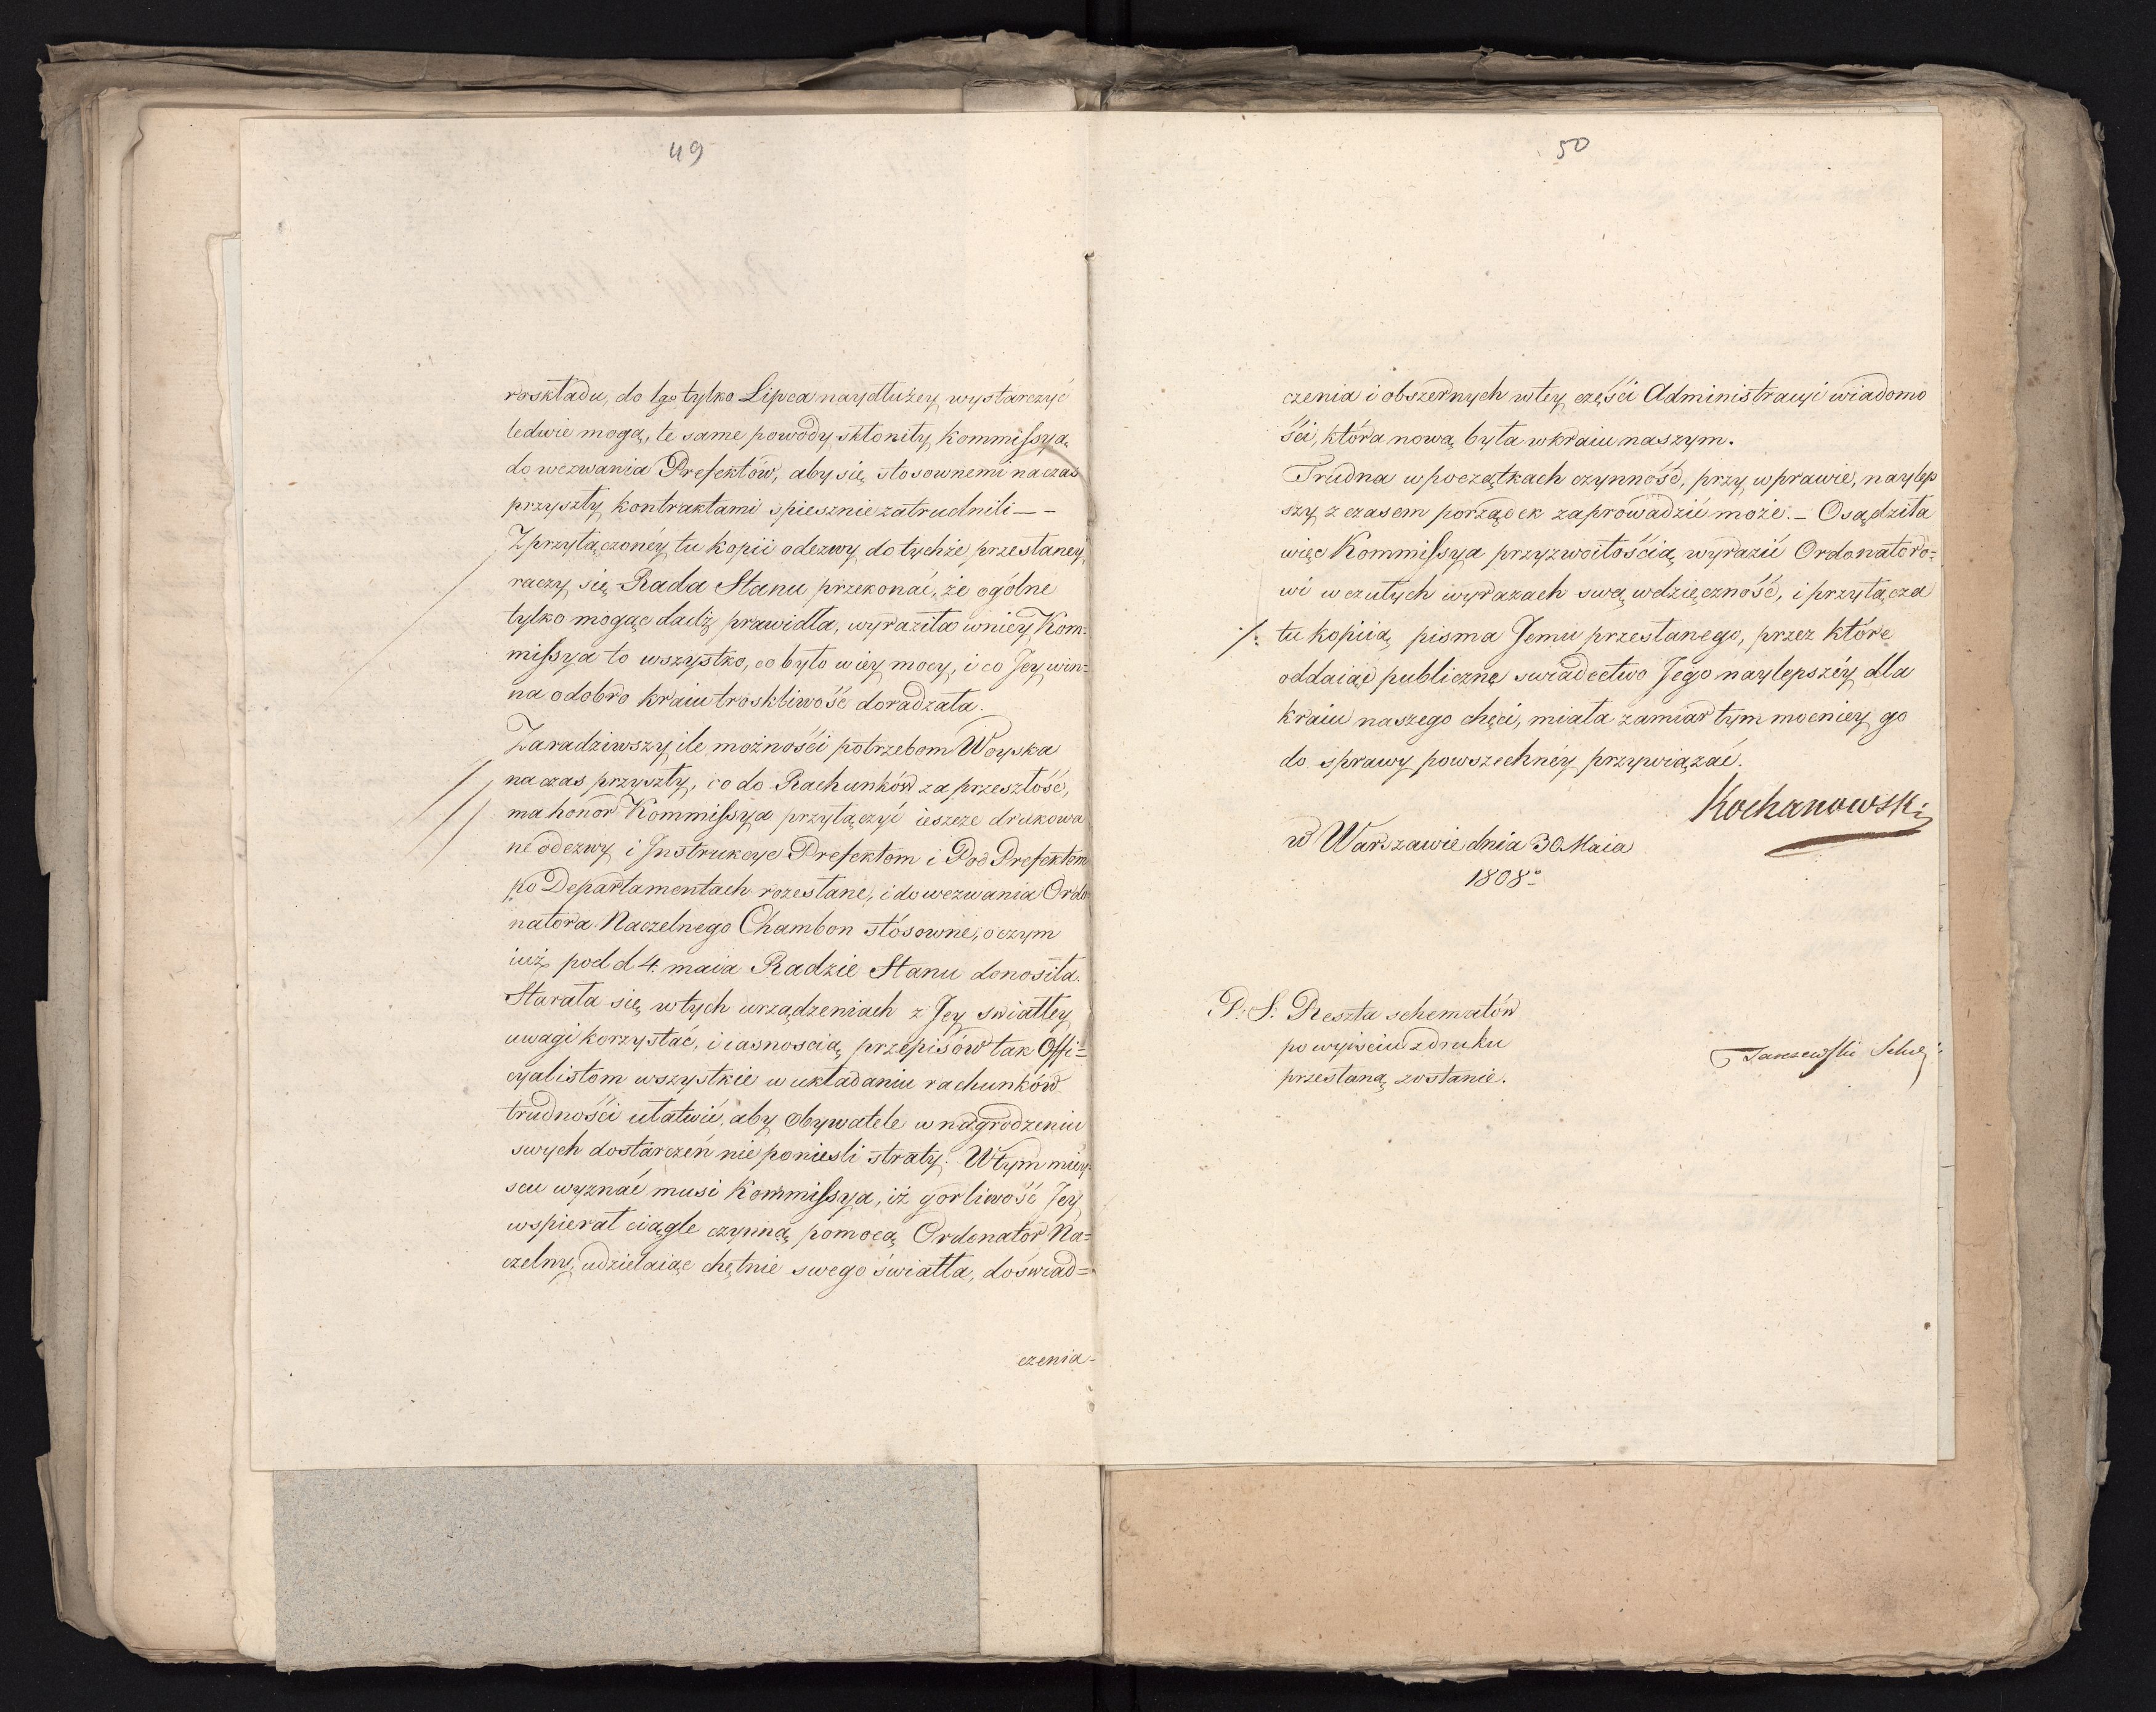 49
roskładu, do 1go tylko Lipca naydłużey wystarczyć
ledwie mogą, te same powody skłoniły Kommissyą
do wezwania Prefektów, aby się stosownemi na czas
przyszły kontraktami spiesznie zatrudnili — —
Z przyłączonéy tu kopii odezwy do tychże przesłaney,
raczy się Rada Stanu przekonać, że ogólne
tylko mogąc dadź prawidła, wyraziła w niey Kom=
missya to wszystko, co było w iey mocy, i co Jey win=
na o dobro kraiu troskliwość doradzała.
Zaradziwszy ile możności potrzebom Woyska
na czas przyszły, co do Rachunków za przeszłość,
ma honor Kommissya przyłączyć ieszcze drukowa
ne odezwy i Instrukcye Prefektom i Pod Prefektom
po Departamentach rozesłane, i do wezwania Ordo=
natora Naczelnego Chambon stósowne, o czym
iuż pod d 4. maia Radzie Stanu donosiła.
Starała się w tych urządzeniach z Jey swiatłey
uwagi korzystać, i iasnoscią przepisów tak Offi=
cyalistom wszystkie w układaniu rachunków
trudności ułatwić, aby Obywatele w nagrodzeniu
swych dostarczeń nie poniesli straty. W tym miey=
scu wyznać musi Kommissya, iż gorliwość Jey
wspierał ciągle czynną pomocą Ordonator Na=
czelny, udzielaiąc chętnie swego światła, doświad=
czenia-
50
czenia i obszernych w tey części Administracyi wiadomo
ści, która nową była w kraiu naszym.
Trudna w początkach czynność, przy wprawie, naylep
szy z czasem porządek zaprowadzić może. — Osądziła
więc Kommissya przyzwoitością wyrazić Ordonatoro=
wi w czułych wyrazach swą wdzięczność, i przyłącza
./. tu kopiią pisma Jemu przesłanego, przez które
oddaiąc publiczne swiadectwo Jego naylepszéy dla
kraiu naszego chęci, miała zamiar tym mocniey go
do sprawy powszechnéy przywiązać.
Kochanowski
w Warszawie dnia 30 Maia
1808º
P. S: Reszta schematów
po wyiściu z druku
przesłaną zostanie.